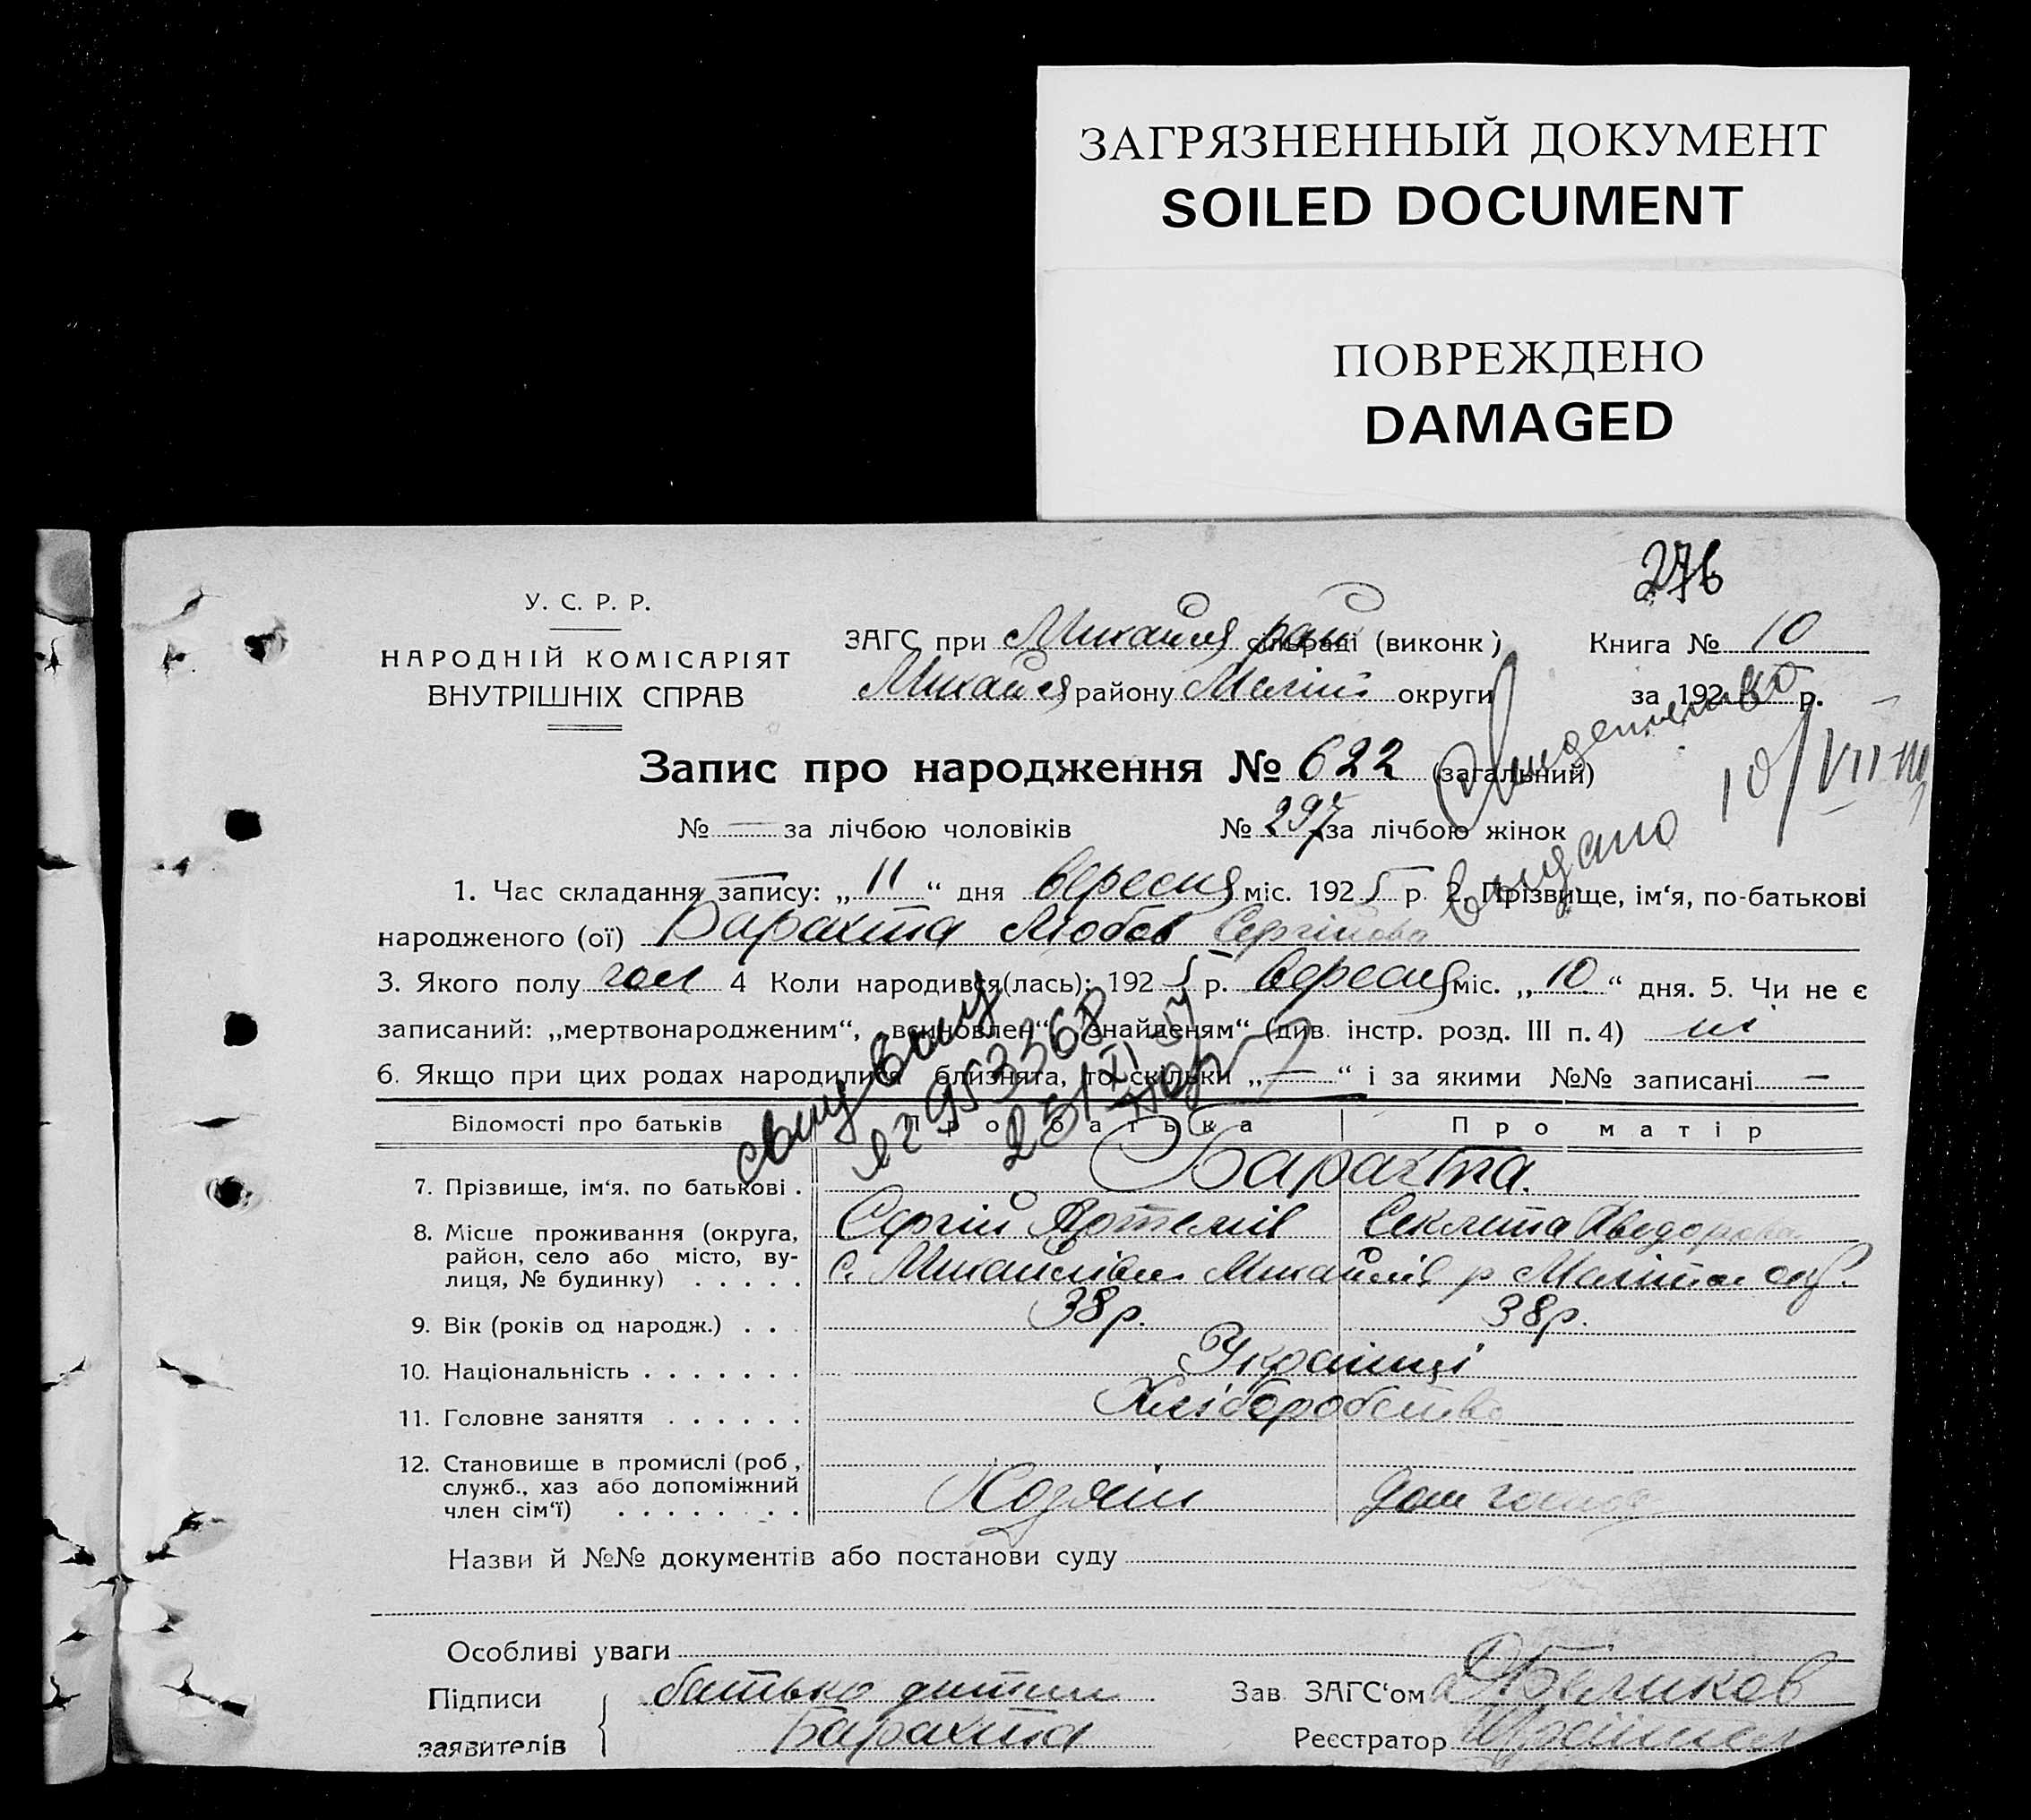 ЗАГРЯЗНЕННЫЙ ДОКУМЕНТ
SOILED DOCUMENT
ПОВРЕЖДЕНО
DAMAGED
276
У. С. Р. Р.
НАРОДНІЙ КОМІСАРІЯТ
ВНУТРІШНІХ СПРАВ
ЗАГС при Михайл рай сільраді (виконк)
Книга № 10
Михайл району Меліт округи
за 192 р.
Запис про народження № 622 (загальний)
№ — за лічбою чоловіків № 297 за лічбою жінок
видано 10/VII
1. Час складання запису: „11“ дня вересня міс. 1925 р. 2. Прізвище, ім‘я, по-батькові
народженого (ої) Барахта Любов Сергійова
3. Якого полу жін 4 Коли народився(лась): 1925 р. вересня міс. „10“ дня. 5. Чи не є
записаний: „мертвонародженим“, „всиновлен“ „знайденям“ (див. інстр. розд. III п. 4) ні
6. Якщо при цих родах народилися близнята, то скільки „—“ і за якими №№ записані —
Відомості про батьків
Про батька
Про матір
7. Прізвище, ім‘я. по батькові .
Барахта.
Сергій Артемів
Секлета Хведорова
8. Місце проживання (округа, район, село або місто, ву-
лиця, № будинку) . . . . .
с. Михайлівка Михайлів р Меліт окр.
9. Вік (років од народж.) . . .
38р.
38р.
10. Національність . . . . . . .
Українці
11. Головне заняття . . . . . .
Хліборобство
12. Становище в промислі (роб,
служб., хаз або допоміжний
член сім‘ї) . . . . . . . .
Хозяїн
Дом
Назви й №№ документів або постанови суду
Особливі уваги
Підписи
заявителів
батько дитини
Барахта
Зав. ЗАГС‘ом Беликов
Реєстратор